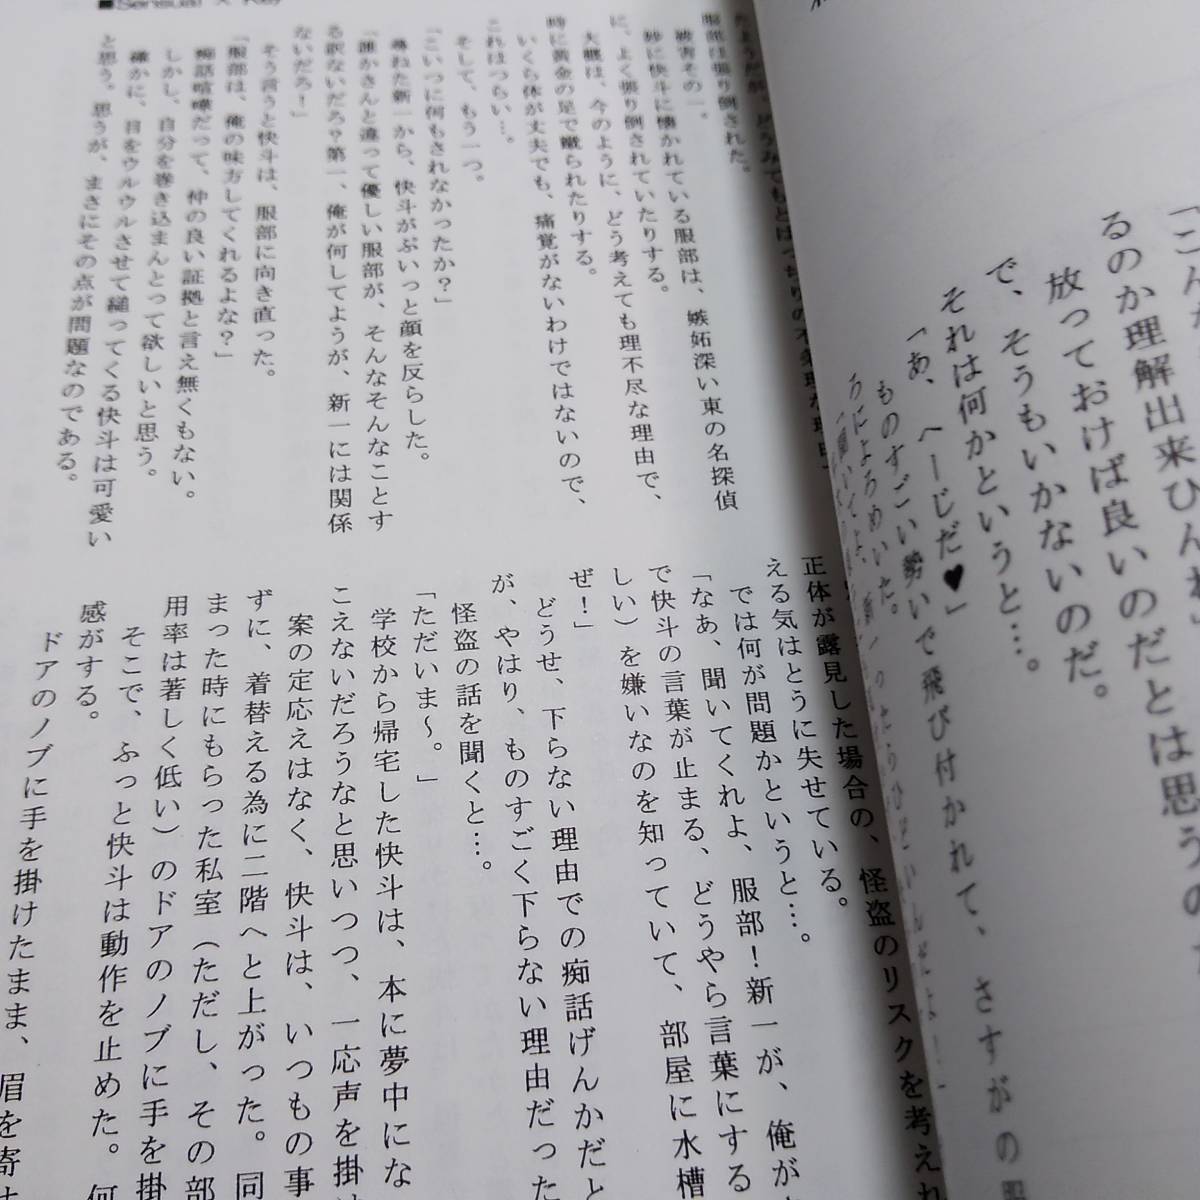 ■Sensual × Key
「こん
るのか理解出来ひんわ」
放っておけば良いのだとは思うの
で、そうもいかないのだ。
それは何かというと…。
「あ、へーじだ♥」
ものすごい勢いで飛び付かれて、さすがの服
ろによろめいた。
服部は張り倒された。
被害その一。
妙に快斗に懐かれている服部は、嫉妬深い東の名探偵
に、よく張り倒されていたりする。
大概は、今のように、どう考えても理不尽な理由で、
時に黄金の足で蹴られたりする。
いくら体が丈夫でも、痛覚がないわけではないので、
これはつらい…。
そして、もう一つ。
「こいつに何もされなかったか?」
尋ねた新一から、快斗がぷいっと顔を反らした。
「誰かさんと違って優しい服部が、そんなそんなことす
る訳ないだろ?第一、俺が何してようが、新一には関係
ないだろ!」
そう言うと快斗は、服部に向き直った。
「服部は、俺の味方してくれるよな?」
痴話喧嘩だって、仲の良い証拠と言え無くもない。
しかし、自分を巻き込まんとって欲しいと思う。
確かに、目をウルウルさせて縋ってくる快斗は可愛い
と思う。思うが、まさにその点が問題なのである。
正体が露見した場合の、怪盗のリスクを考えれ
える気はとうに失せている。
では何が問題かというと…。
「なあ、聞いてくれよ、服部!新一が、俺が
で快斗の言葉が止まる、どうやら言葉にする
しい)を嫌いなのを知っていて、部屋に水槽
ぜ!」
どうせ、下らない理由での痴話げんかだと
が、やはり、ものすごく下らない理由だった
怪盗の話を聞くと…。
「ただいま～。」
学校から帰宅した快斗は、本に夢中にな
こえないだろうなと思いつつ、一応声を掛け
案の定応えはなく、快斗は、いつもの事
ずに、着替える為に二階へと上がった。同
まった時にもらった私室(ただし、その部
用率は著しく低い)のドアのノブに手を掛
そこで、ふっと快斗は動作を止めた。何
感がする。
ドアのノブに手を掛けたまま、眉を寄せ